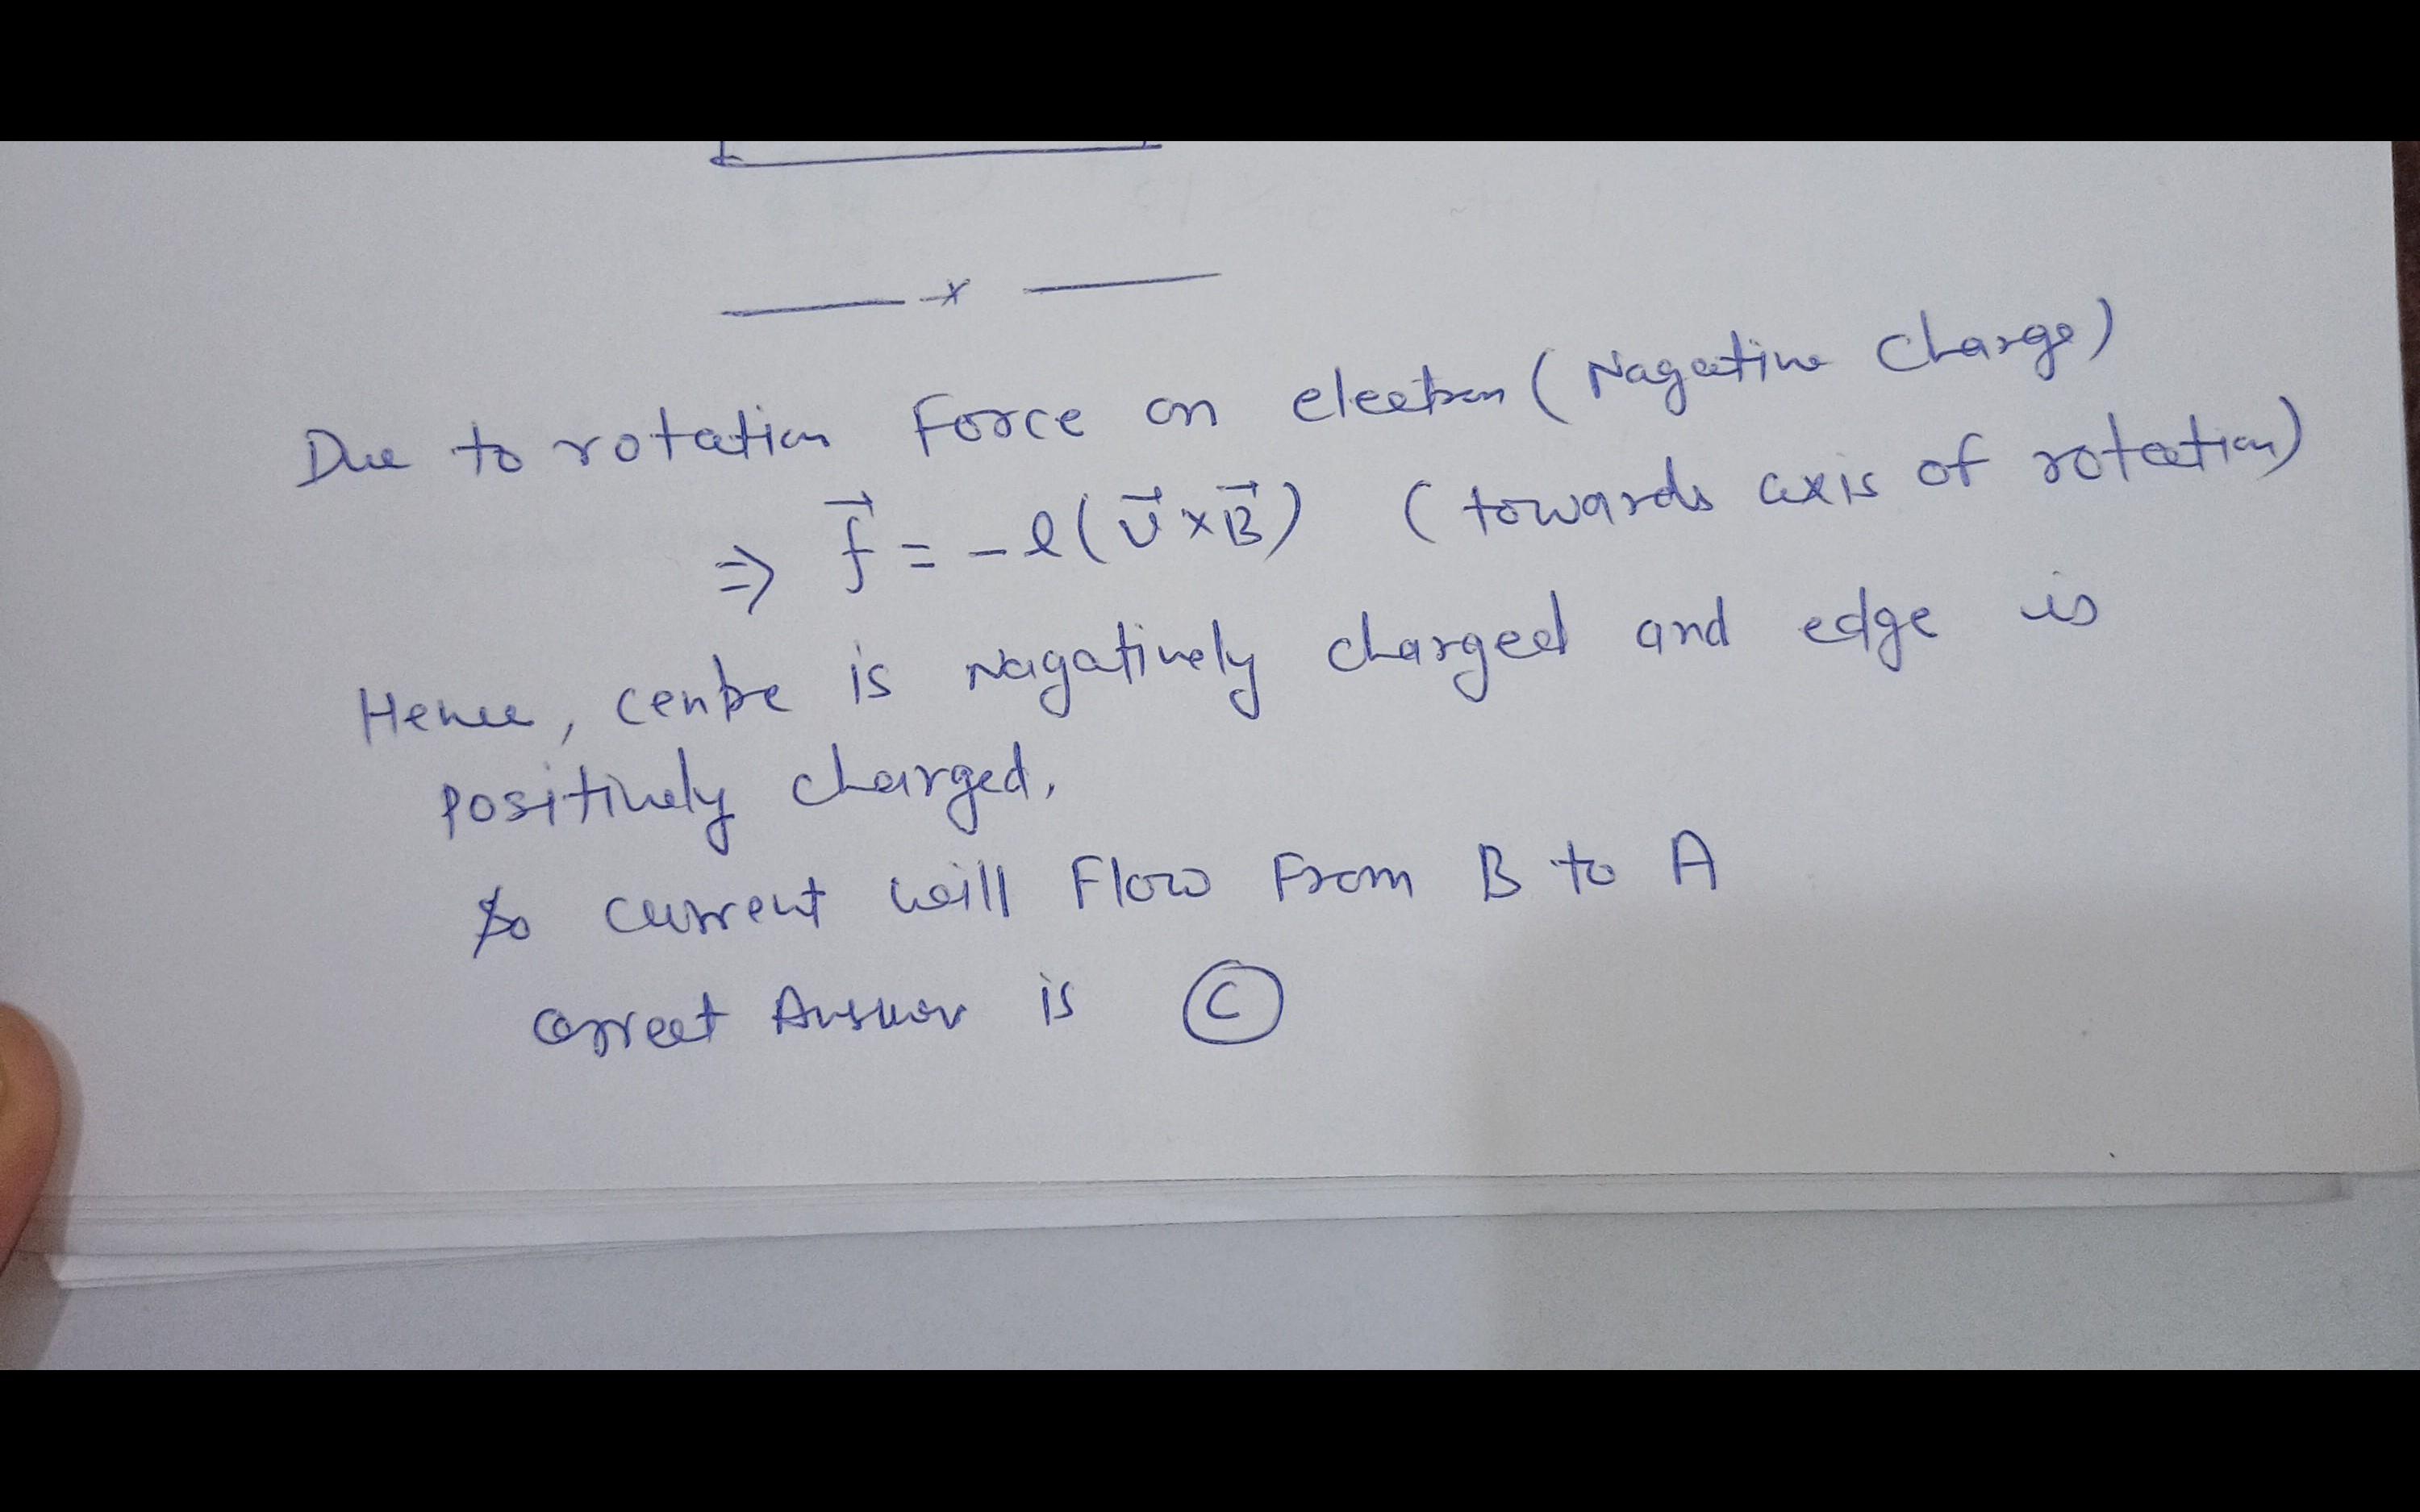 x
Due to rotation Force on electron (Nagative Charge)
⇒ f⃗ = -e(v⃗×B⃗) (towards axis of rotation)
Hence, centre is Nagatively charged and edge is
positively charged.
So current will Flow From B to A
correct Answer is C